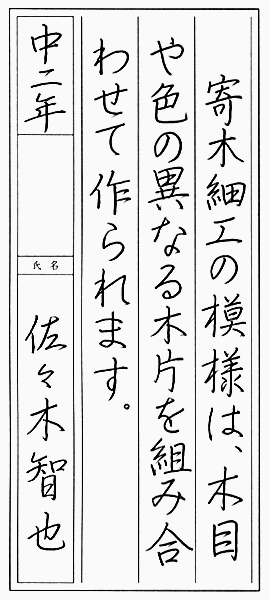 寄木細工の模様は、木目
や色の異なる木片を組み合
わせて作られます。
中二年
氏名
佐々木智也